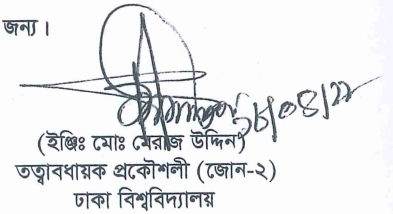 জন্য ।
(ইঞ্জিঃ মোঃ মেরাজ উদ্দিন)
তত্বাবধায়ক প্রকৌশলী (জোন-২)
ঢাকা বিশ্ববিদ্যালয়